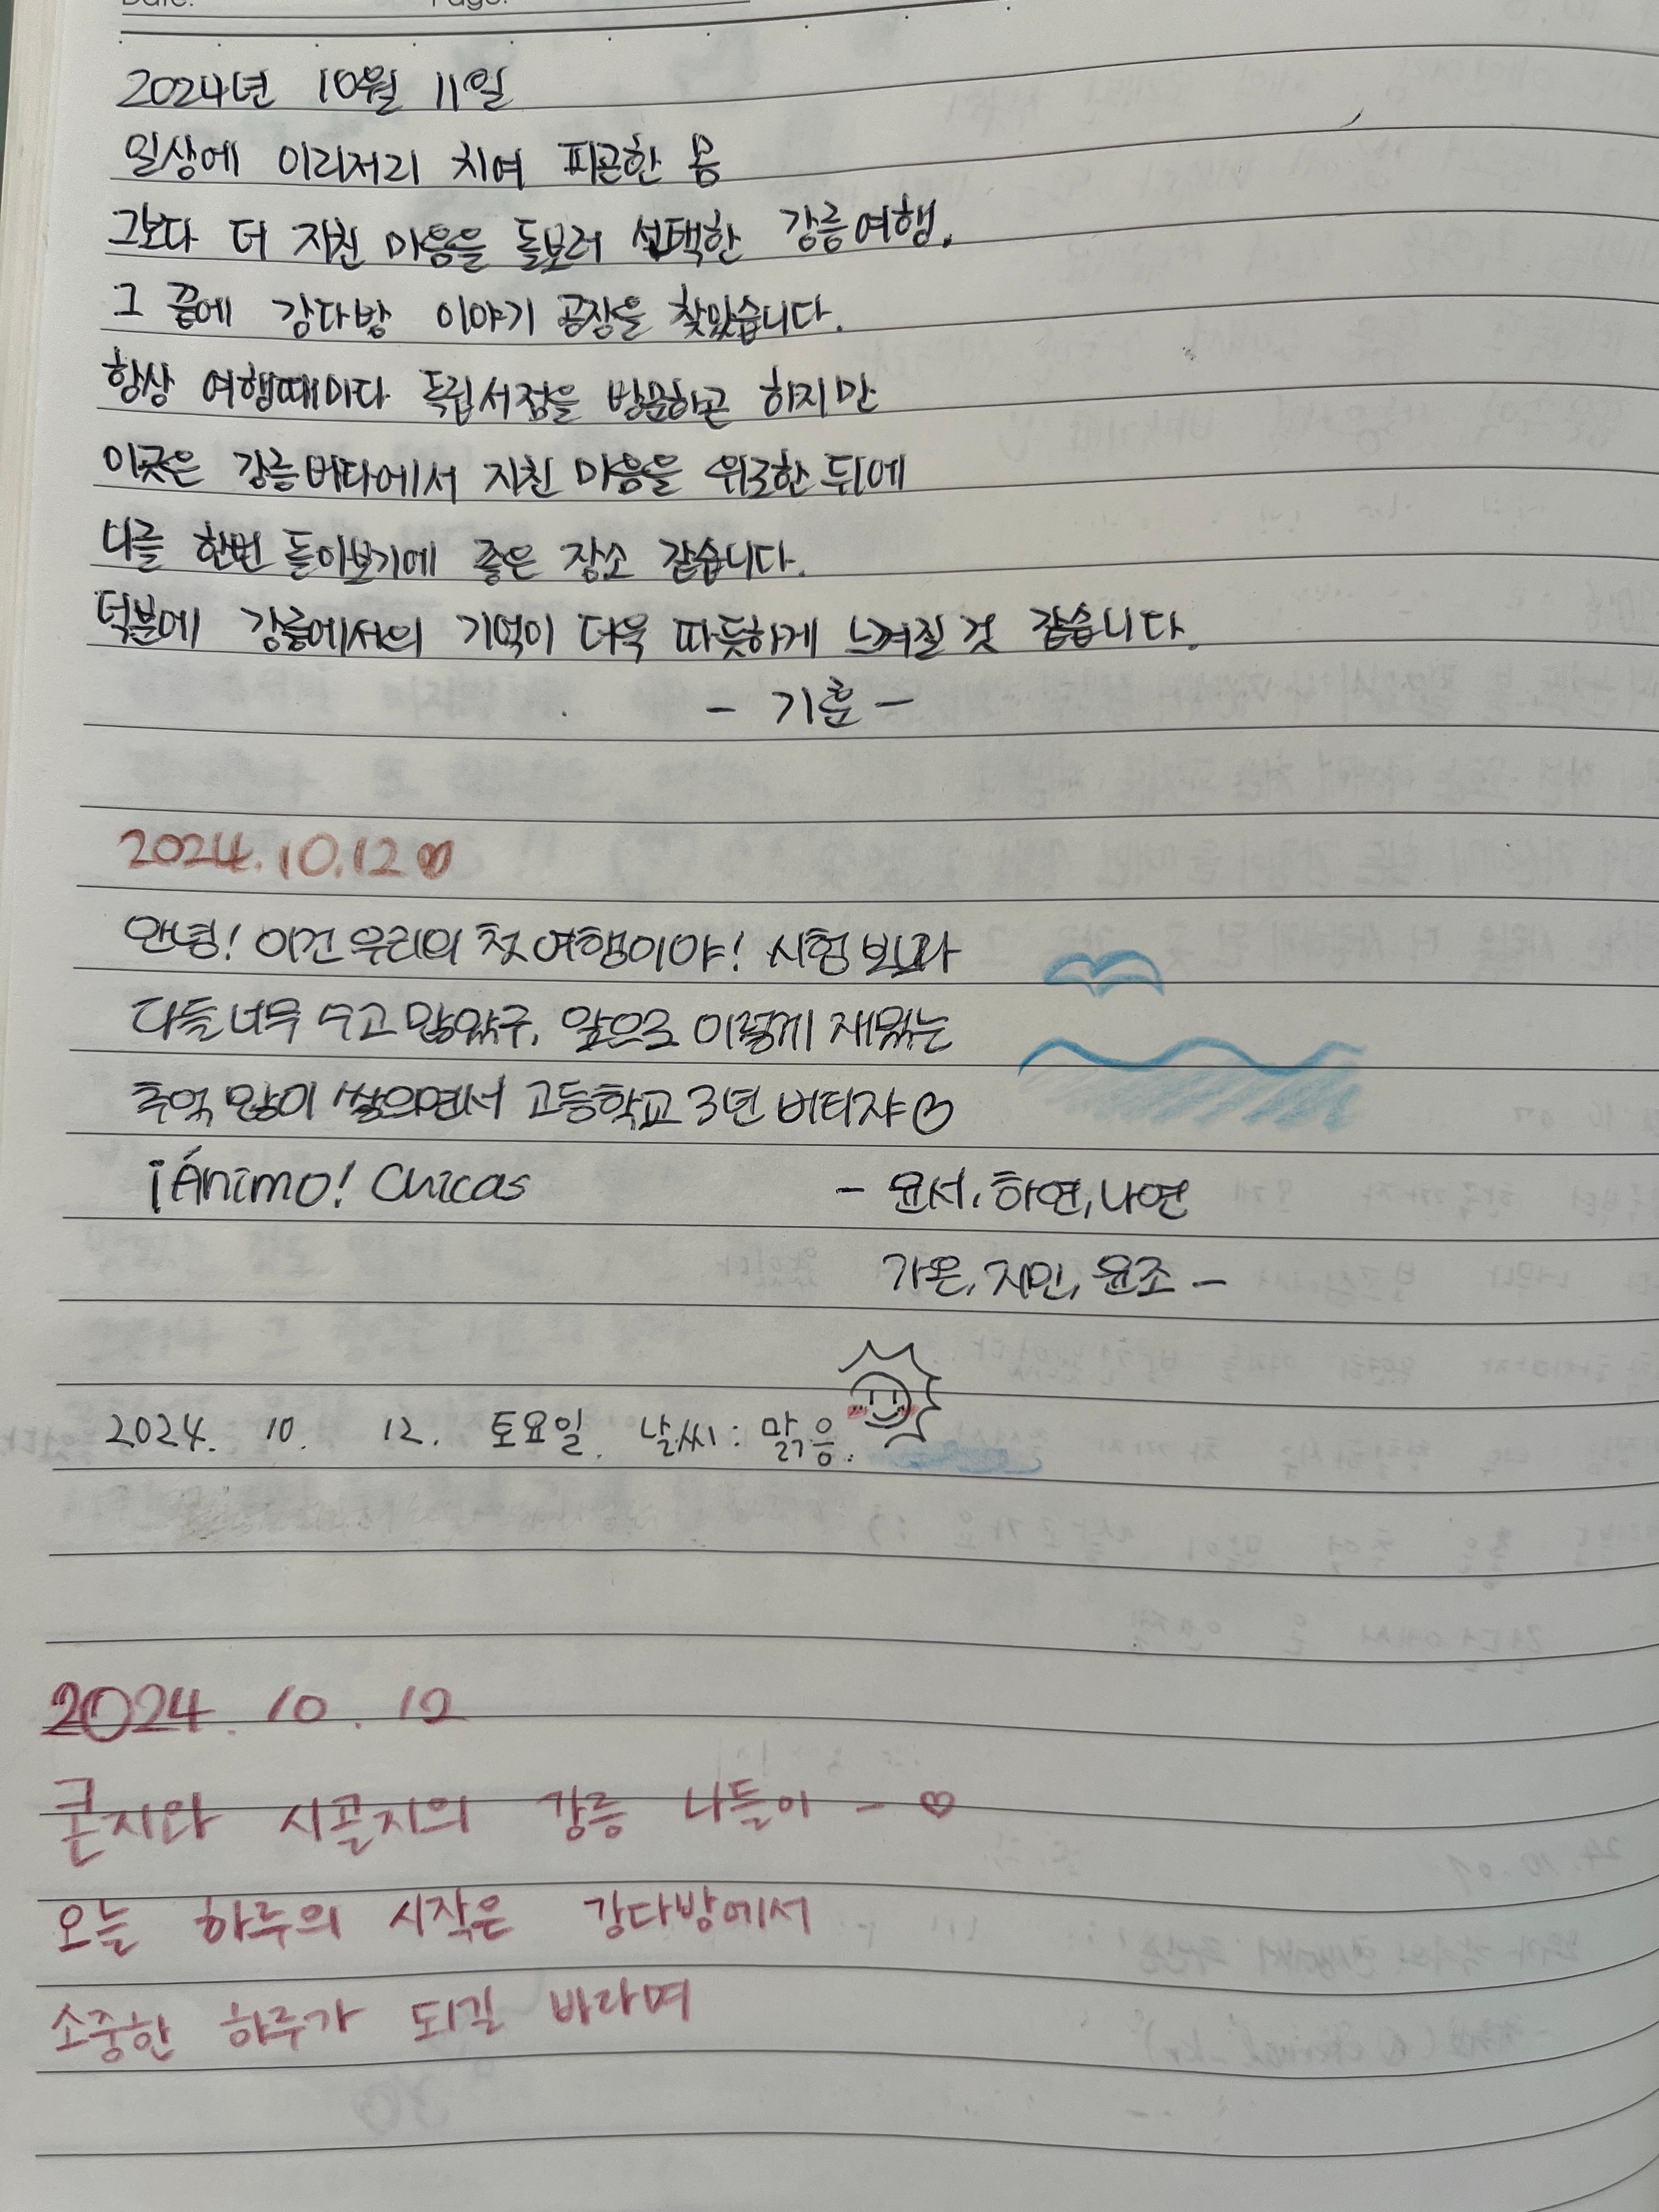 Date. Page.
2024년 10월 11일
일상에 이리저리 치여 피곤한 몸
그보다 더 지친 마음을 돌보러 선택한 강릉여행.
그 끝에 강다방 이야기 공장을 찾았습니다.
항상 여행때마다 독립서점을 방문하곤 하지만
이곳은 강릉바다에서 지친 마음을 위로한 뒤에
나를 한번 돌아보기에 좋은 장소 같습니다.
덕분에 강릉에서의 기억이 더욱 따듯하게 느껴질 것 같습니다.
- 기훈 -
2024.10.12♡
안녕! 이건 우리의 첫 여행이야! 시험 보느라
다들 너무 수고 많았구, 앞으로 이렇게 재밌는
추억 많이 쌓으면서 고등학교 3년 버티쟈♡
¡Ánimo! Chicas - 윤서, 하연, 나연
가온, 지민, 윤조 -
2024. 10. 12. 토요일. 날씨: 맑음.
2024. 10. 12
콘지와 시골지의 강릉 나들이 - ♡
오늘 하루의 시작은 강다방에서
소중한 하루가 되길 바라며